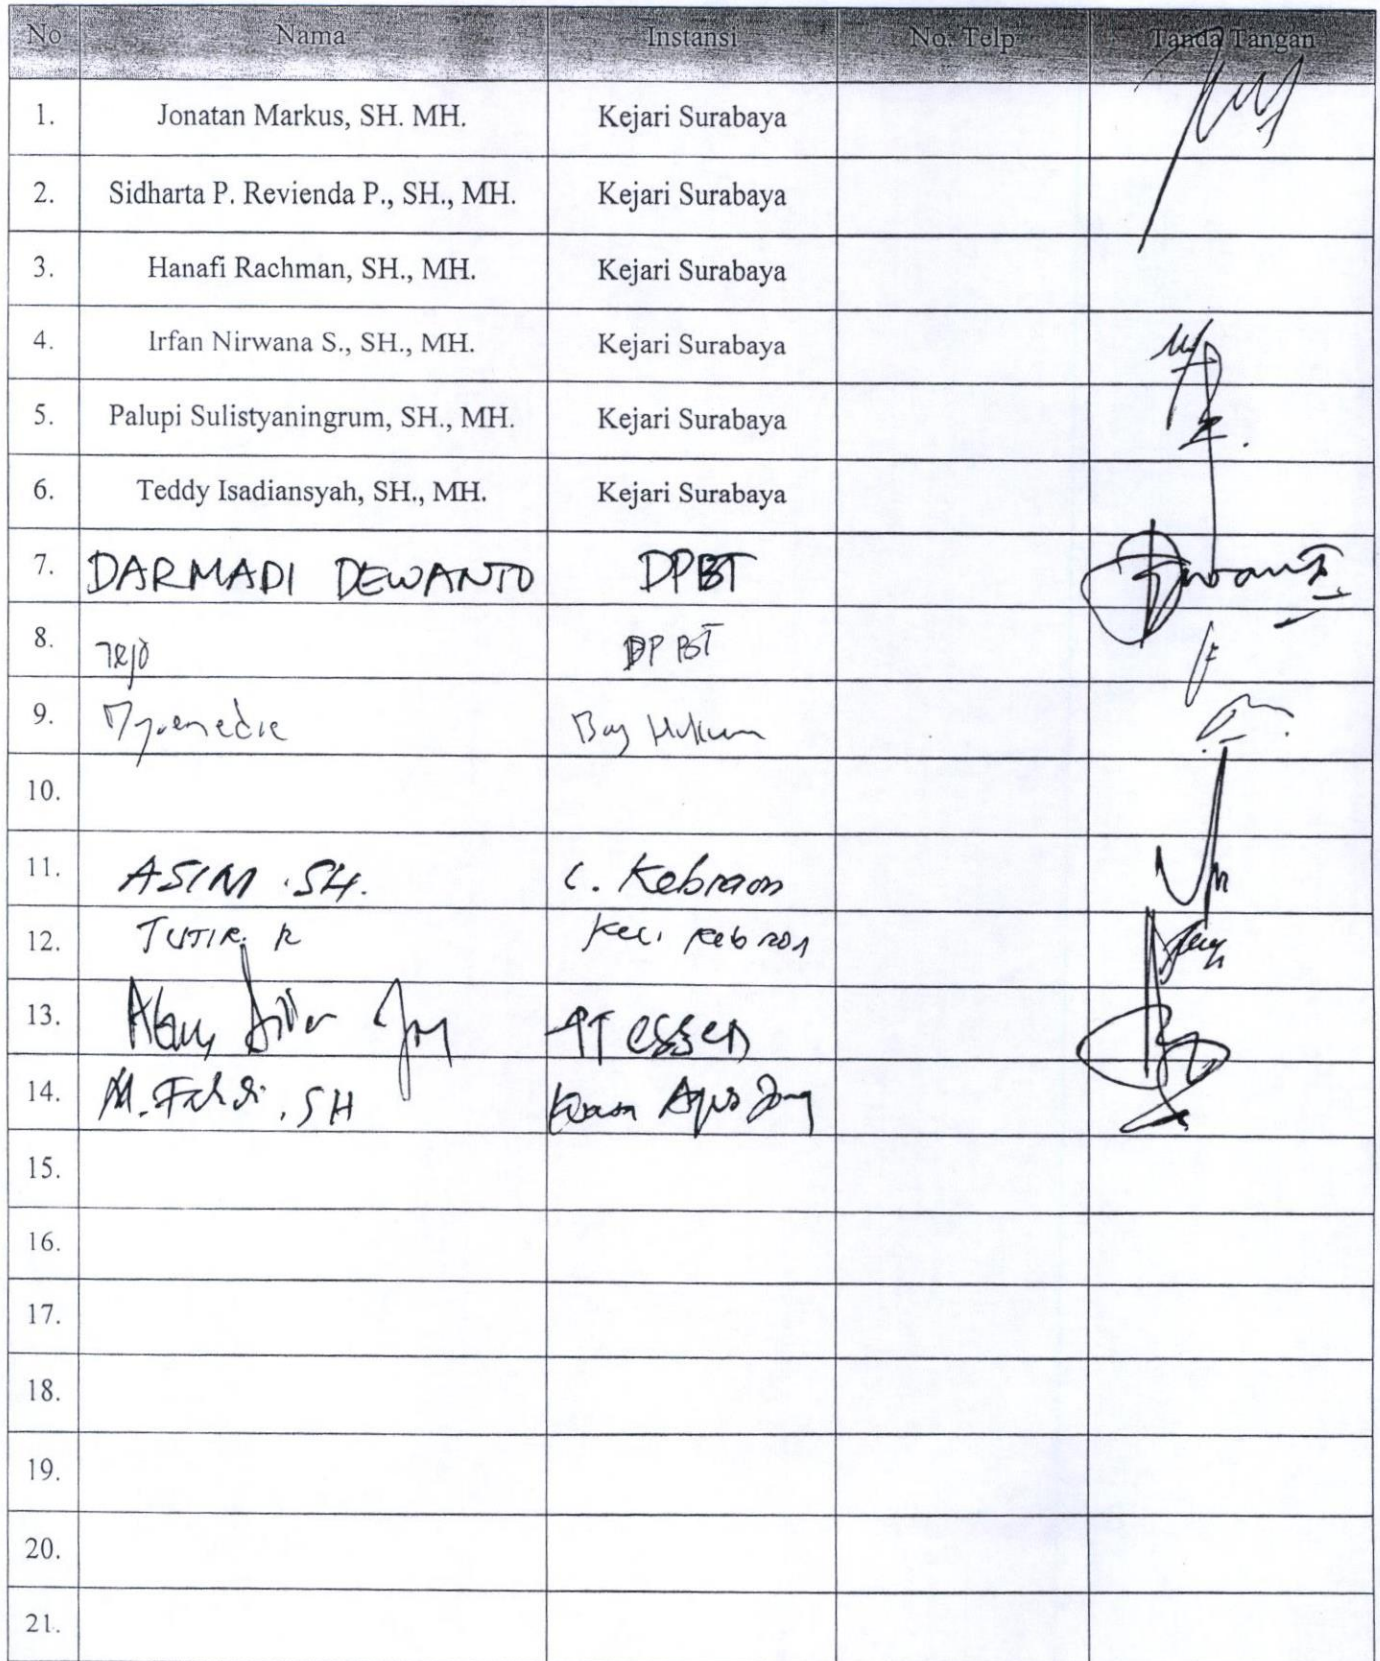 No Nama Instansi No. Telp Tanda Tangan
1. Jonatan Markus, SH. MH. Kejari Surabaya
2. Sidharta P. Revienda P., SH., MH. Kejari Surabaya
3. Hanafi Rachman, SH., MH. Kejari Surabaya
4. Irfan Nirwana S., SH., MH. Kejari Surabaya
5. Palupi Sulistyaningrum, SH., MH. Kejari Surabaya
6. Teddy Isadiansyah, SH., MH. Kejari Surabaya
7. DARMADI DEWANTO DPBT
8. Tejo DPBT
9. Bag Hukum
10.
11. ASIM .SH. L. Kebraon
12. Kel. Kebraon
13. PT
14. M. , SH
15.
16.
17.
18.
19.
20.
21.